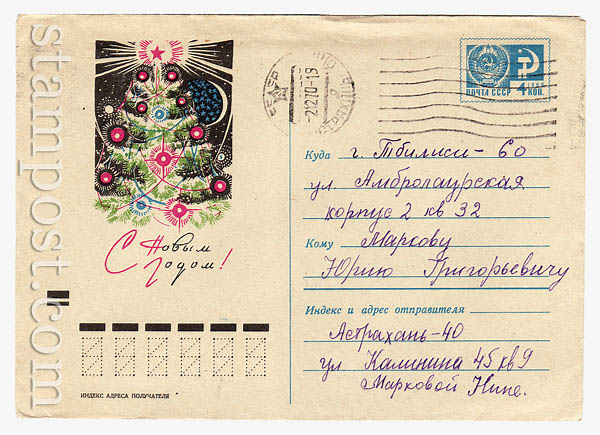 stampost.com
ПОЧТА СССР 4 КОП.
2 12 70-19
С Новым
Годом!
Куда г. Тбилиси - 60
ул. Амбролаурская
корпус 2 кв 32
Кому Маркову
Юрию Григорьевичу
Индекс и адрес отправителя
Астрахань-40
ул Калинина 45 кв 9
Марковой Нине.
ИНДЕКС АДРЕСА ПОЛУЧАТЕЛЯ